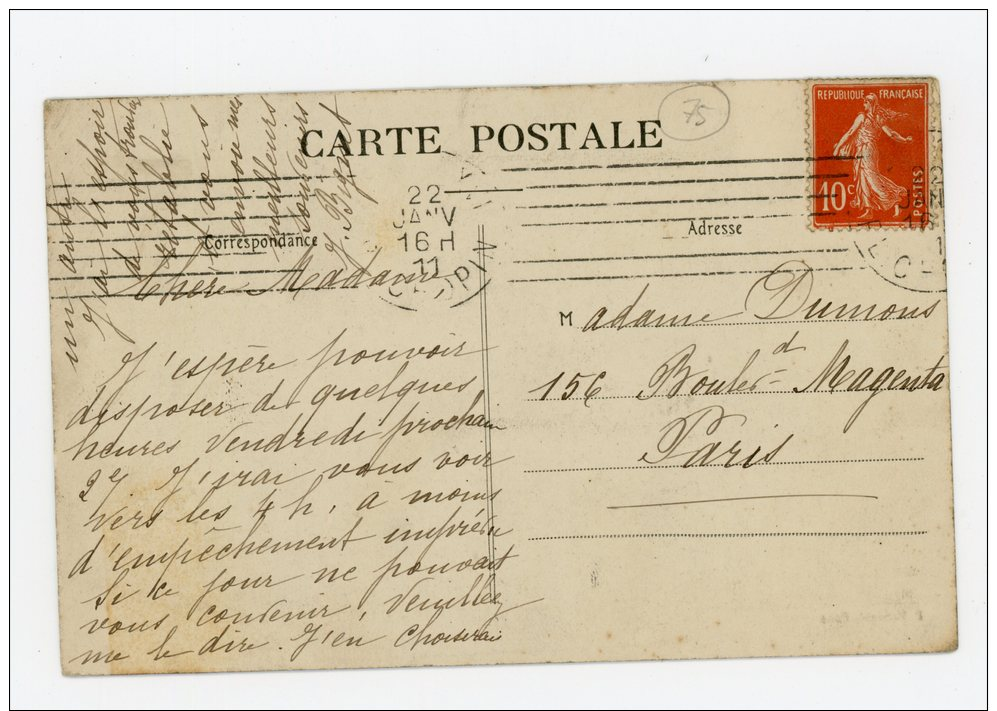 CARTE POSTALE
75
REPUBLIQUE FRANÇAISE
10 c
POSTES
22
JANV
16 H
11
Correspondance
Adresse
Chère Madame
J'espère pouvoir
disposer de quelques
heures Vendredi prochain
27. J'irai vous voir
vers les 4 h, à moins
d'empêchement imprévu
Si ce jour ne pouvait
vous convenir, veuillez
me le dire. J'en choisirai
un autre
J'ai l'espoir
de vous trouver
rétablie
à vous
meilleurs
souvenirs
M adame Dumons
156 Boulev d Magenta
Paris